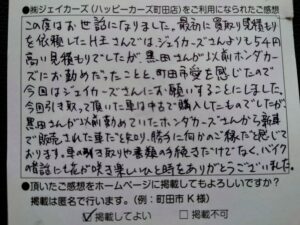 ㈱ジェイカーズ（ハッピーカーズ町田店）をご利用になられたご感想
この度はお世話になりました。最初に買取り見積もり
を依頼したH主さんでは、ジェイカーズさんよりも5千円
高い見積もりでしたが、黒田さんが以前ホンダカー
ズにお勤めだったことと、町田市愛を感じたので
今回はジェイカーズさんにお願いすることにしました。
今回引き取って頂いた車は中古で購入したものでしたが、
黒田さんが以前勤めていたホンダカーズさんから新車
で販売された車だと知り、勝手に何かのご縁だと感じて
おります。車の引き取りや書類の手続きだけでなく、バイク
の話も花が咲き楽しいひと時をありがとうございました。
●頂いたご感想をホームページに掲載してもよろしいですか？
掲載は匿名で行います。（例：町田市 K 様）
☑掲載してよい　□掲載不可